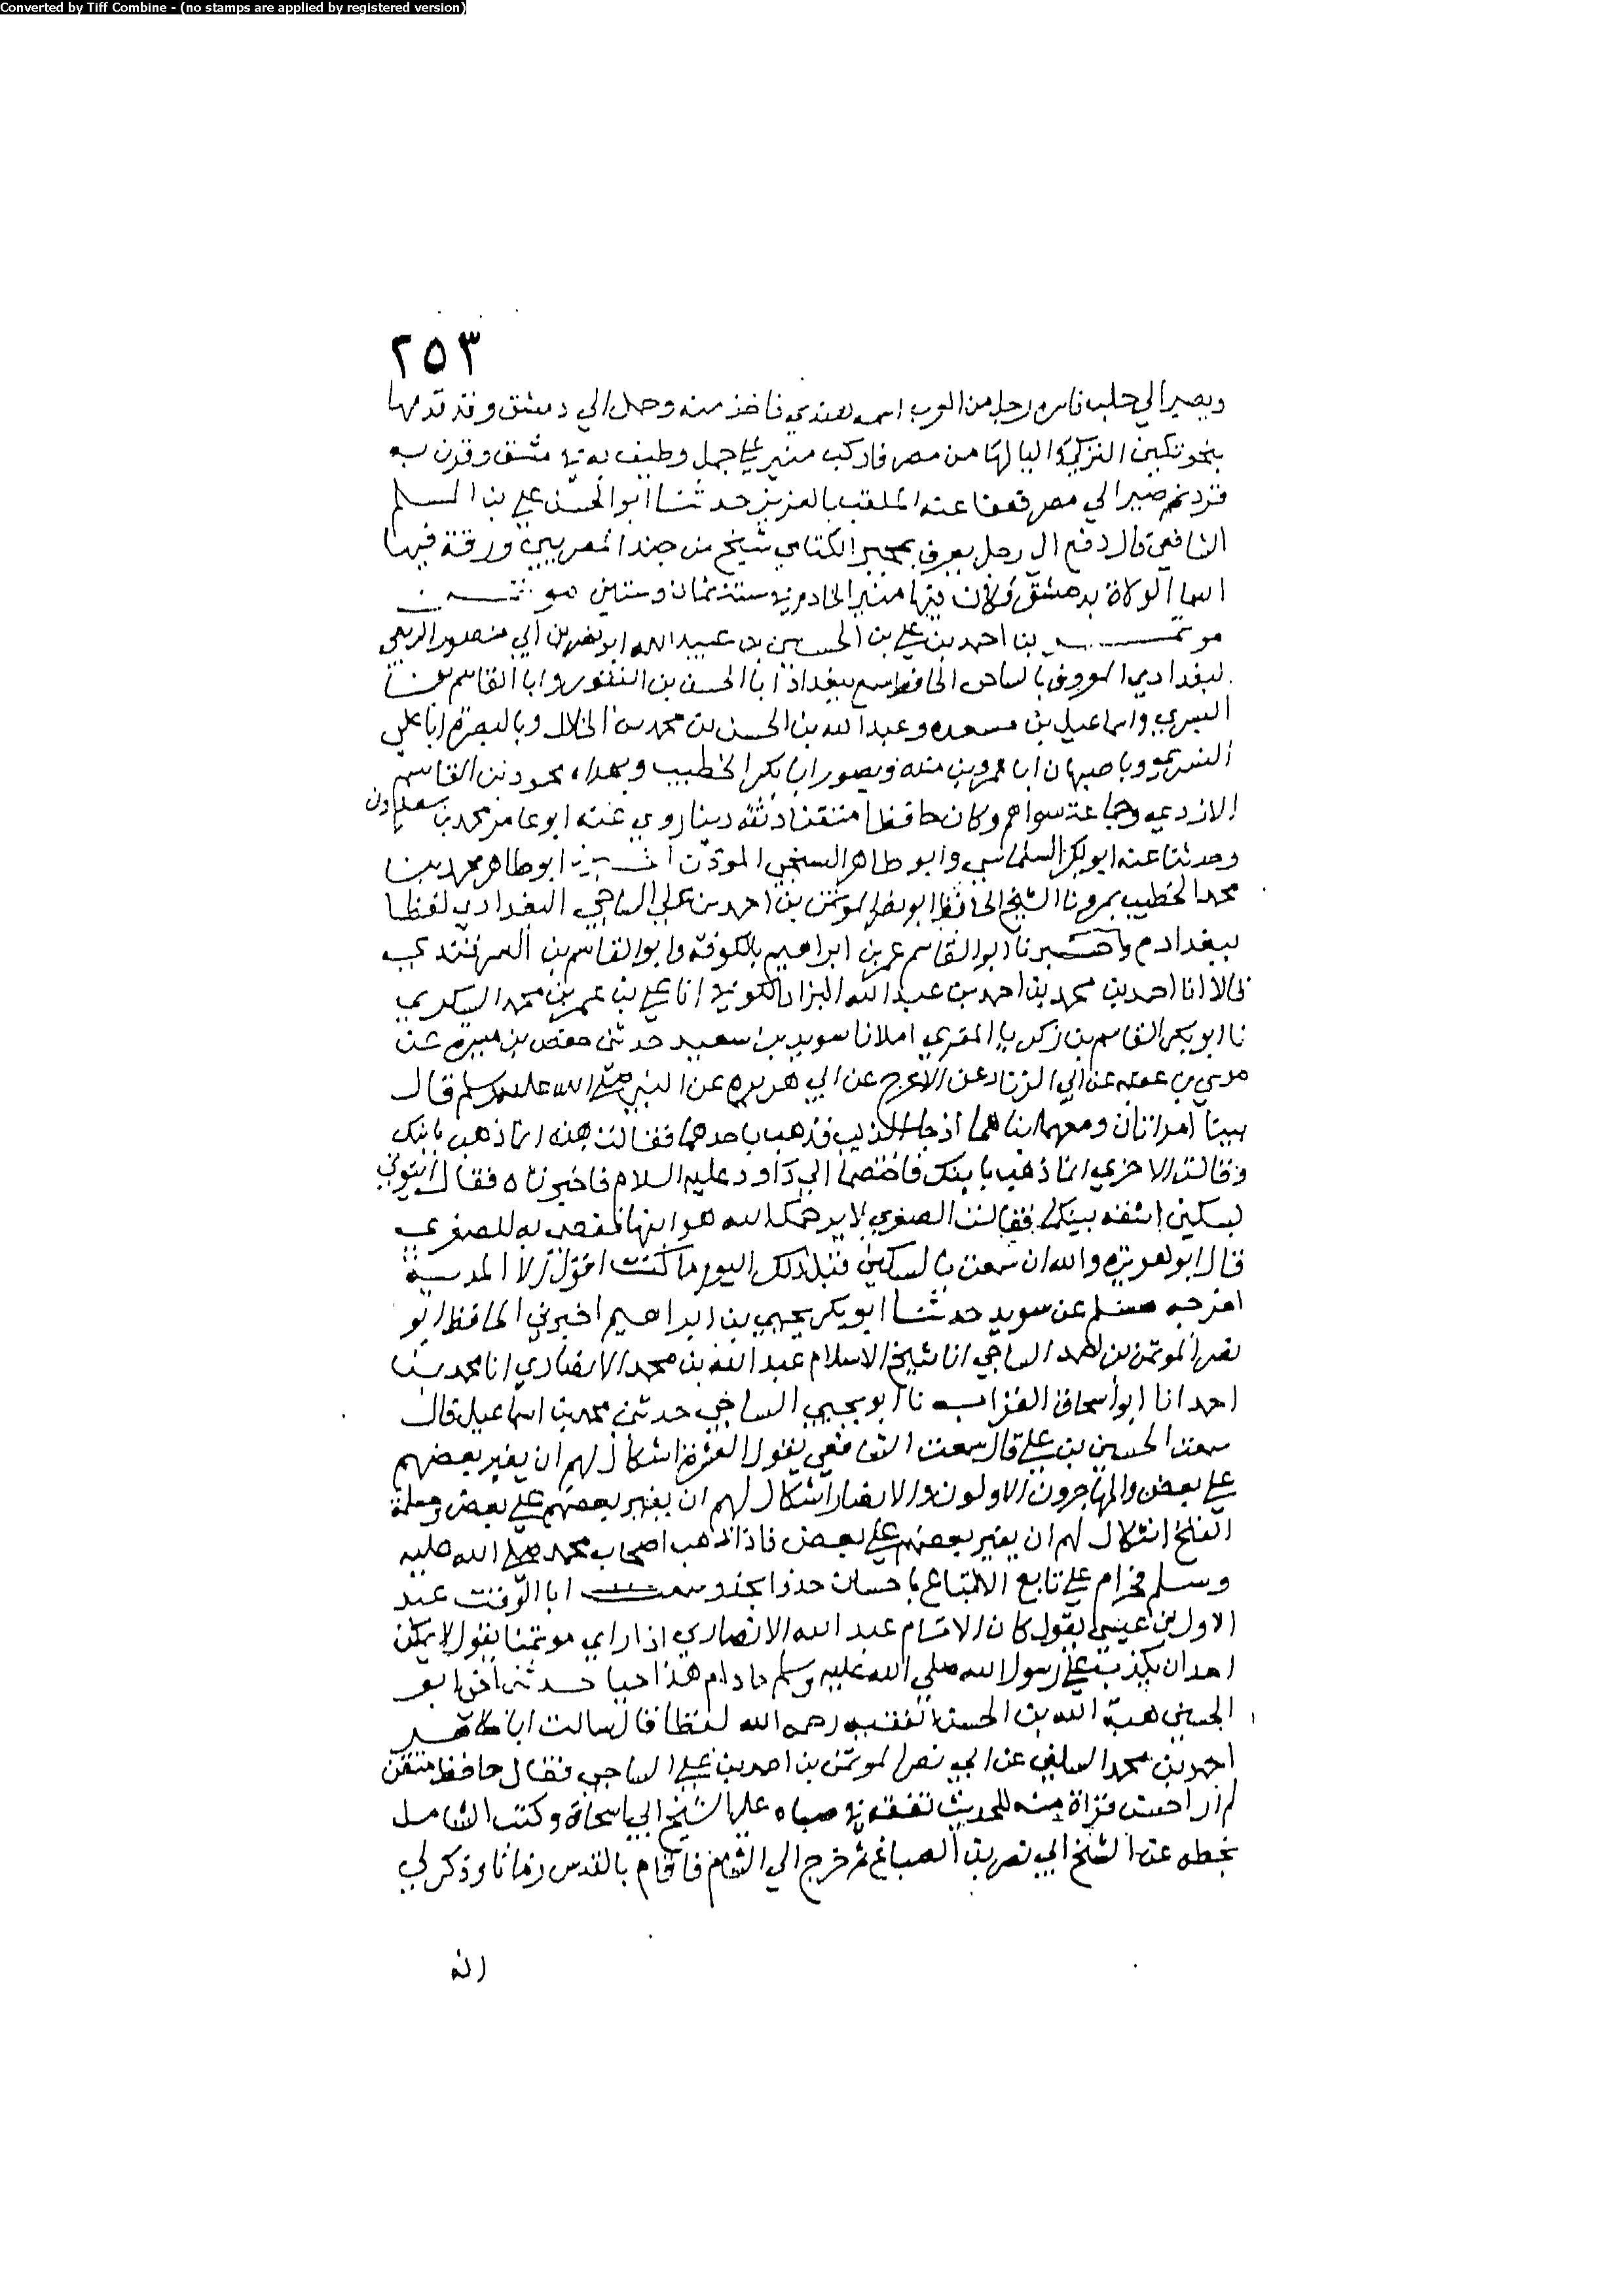 Converted by Tiff Combine - (no stamps are applied by registered version)
٢٥٣
ويصير الي حلب فاسره رجل من العرب اسمه هندي فاخذ منه وحمل الي دمشق وقد قدمها
منجوتكين التركي واليا لها من مصر فاركب منير علي جمل وطيف به في دمشق وقرن به
قرد ثم صير الي مصر فعفا عنه الملقب بالعزيز حدثنا ابو الحسن علي بن المسلم
الشافعي قال دفع الي رجل يعرف بمجير الكتامي شيخ من جند المصريين ورقة فيها
اسما الولاة بدمشق فكان فيها منير الخادم في سنة ثمان وستين
موتمن بن احمد بن علي بن الحسين بن عبيد الله ابو نصر بن ابي منصور الربعي
البغدادي المعروف بالساجي الحافظ سمع ببغداد ابا الحسين بن النقور وابا القاسم بن
البسري واسماعيل بن مسعدة وعبد الله بن الحسن بن محمد بن الخلال وبالبصرة ابا علي
التستري وباصبهان ابا عمرو بن منده وبصور ابا بكر الخطيب وبهراه محمود بن القاسم
الازدي وجماعة سواهم وكان حافظا متقنا ثقة دينا روي عنه ابو عامر محمد بن سعدون
وحدثنا عنه ابو بكر السلماسي وابو طاهر السنجي الموذن اخبرنا ابو طاهر محمد بن
محمد الخطيب بمرو نا الشيخ الحافظ ابو نصر الموتمن بن احمد بن علي الساجي البغدادي لفظا
ببغداد م واخبرنا ابو القاسم عمر بن ابراهيم بالكوفة وابو القاسم بن السمرقندي
قالا انا احمد بن محمد بن احمد بن عبد الله البزاز بالكوفة انا علي بن عمر بن محمد السكري
نا ابو بكر القاسم بن زكريا المقري املا نا سويد بن سعيد حدثني حفص بن ميسرة عن
موسي بن عقبه عن ابي الزناد عن الاعرج عن ابي هريره عن النبي صلي الله عليه وسلم قال
بينا امراتان ومعهما ابناهما اذ جا الذيب فذهب باحدهما فقالت هذه انما ذهب بابنك
وقالت الاخري انما ذهب بابنك فاختصما الي داود عليه السلام فاخبرتاه فقال ايتوني
بسكين اشقه بينكما فقالت الصغري لا يرحمك الله هو ابنها فقضي به للصغري
قال ابو هريره والله ان سمعت بالسكين قبل ذلك اليوم ما كنت اقول الا المدية
اخرجه مسلم عن سويد حدثنا ابو بكر يحيي بن ابراهيم اخبرني الحافظ ابو
نصر الموتمن بن احمد الساجي انا شيخ الاسلام عبد الله بن محمد الانصاري انا محمد بن
احمد انا ابو اسحاق القراب نا ابو يحيي الساجي حدثني محمد بن اسماعيل قال
سمعت الحسين بن علي قال سمعت الشافعي يقول العشرة اشكال لهم ان يغير بعضهم
علي بعض والمهاجرون الاولون والانصار اشكال لهم ان يغير بعضهم علي بعض ومسلمة
الفتح اشكال لهم ان يغير بعضهم علي بعض فاذا ذهب اصحاب محمد صلي الله عليه
وسلم فحرام علي تابع الا اتباع باحسان حذوا بحذو سمعت ابا الوقت عبد
الاول بن عيسي يقول كان الامام عبد الله الانصاري اذا راي موتمنا يقول لا يمكن
احد ان يكذب علي رسول الله صلي الله عليه وسلم ما دام هذا حيا حدثني اخي ابو
الحسين هبة الله بن الحسن الفقيه رحمه الله لفظا قال سالت ابا طاهر
احمد بن محمد السلفي عن ابي نصر الموتمن بن احمد بن علي الساجي فقال حافظ متقن
لم ار احسن قراة منه للحديث تفقه في صباه علي الشيخ ابي اسحاق وكتب الشامل
بخطه عن الشيخ ابي نصر بن الصباغ ثم خرج الي الشام فاقام بالقدس زمانا وذكر لي
انه